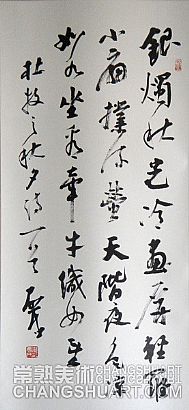 銀燭秋光冷畫屏輕羅
小扇撲流螢天階夜色涼
如水坐看牽牛織女星
杜牧之秋夕詩一首
常熟美術
CHANGSHUART.COM